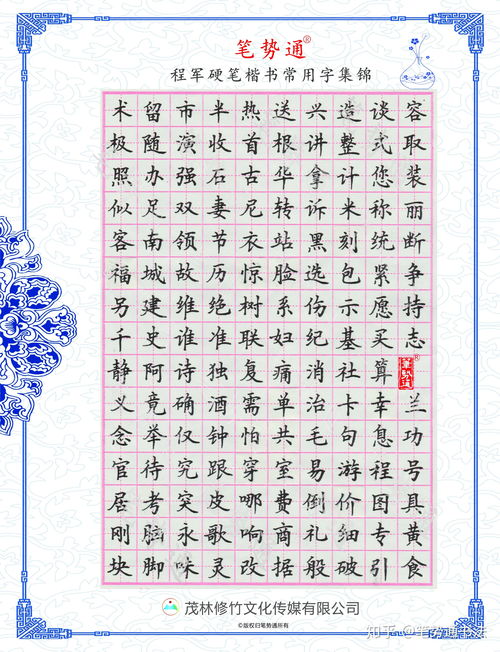 笔势通®
程军硬笔楷书常用字集锦
容取装丽断争持志
®
兰功号具黄食
谈式您称统紧愿买算幸息程图专引
造整计米刻包示基社卡句游价细破
兴讲拿诉黑选伤纪消治毛易倒礼般
送根华转站脸系妇痛单共室费商据
热首古尼衣惊树联复需怕穿哪响改
半收石妻节历绝准独酒钟跟皮歌灵
市演强双领故维谁诗确仅究突永味
留随办足南城建史阿竟举待考脑脚
术极照似客福另千静义念官居刚块
茂林修竹文化传媒有限公司
©版权归笔势通所有
知乎 @笔势通书法